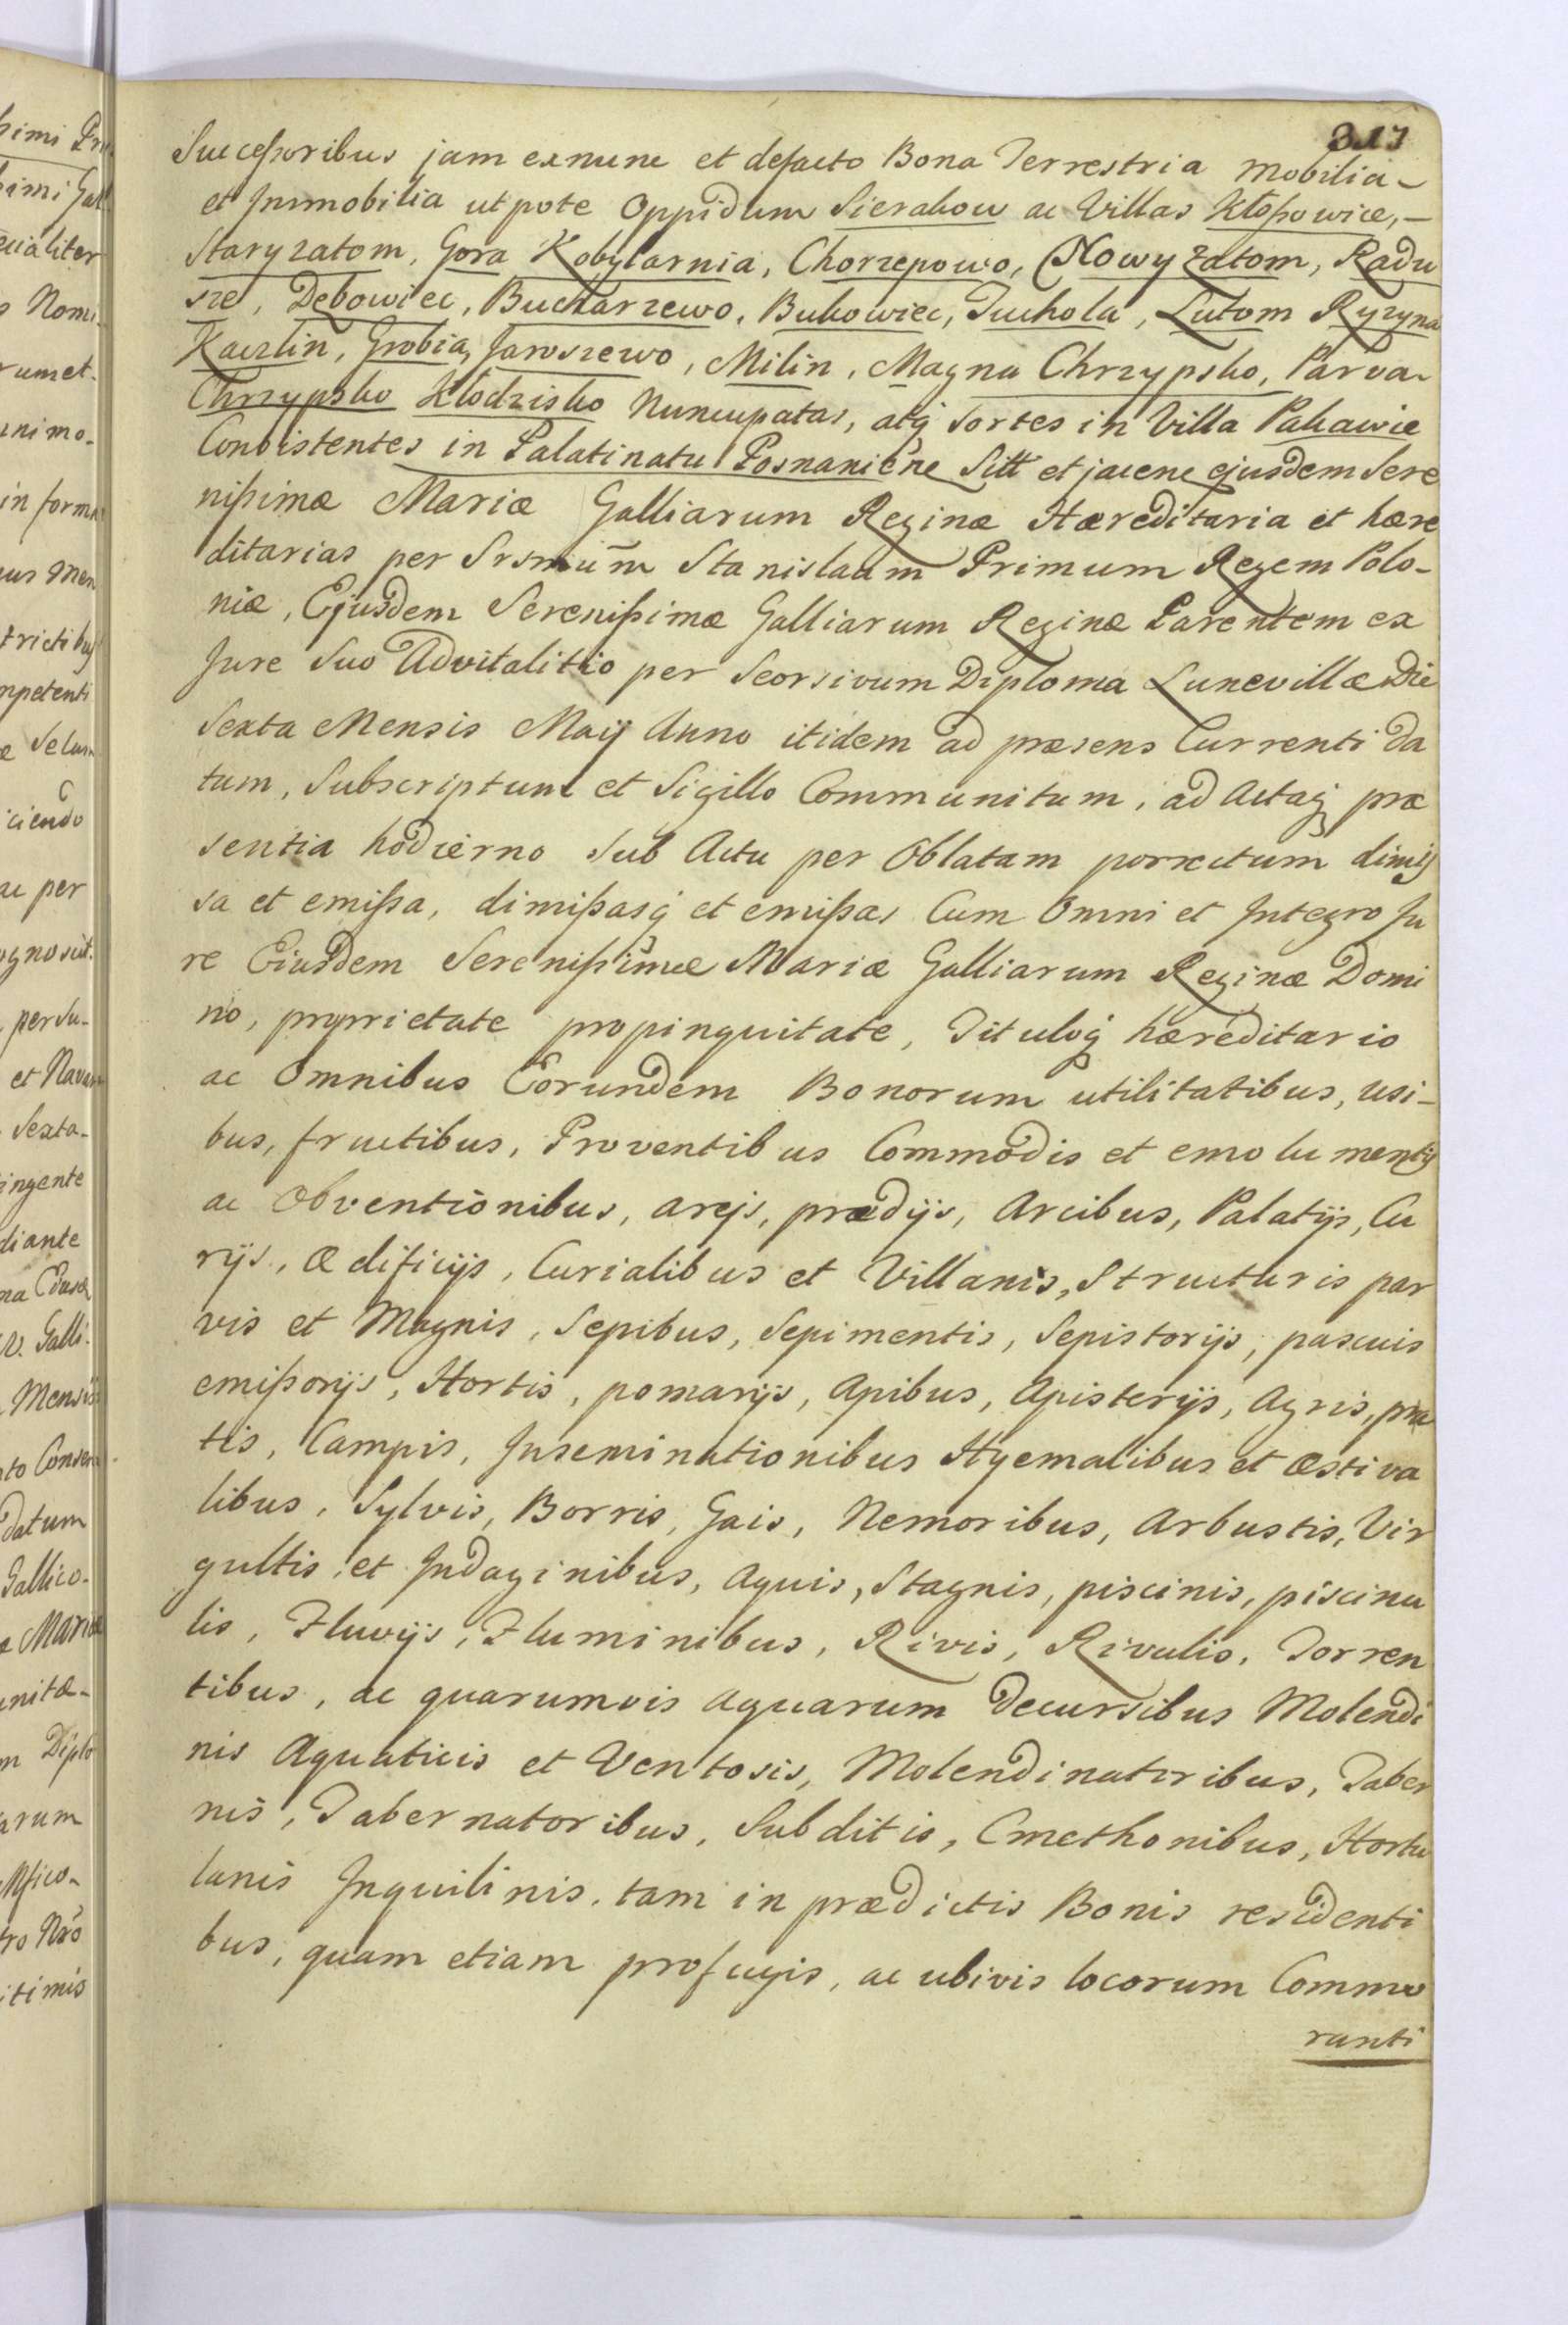 317
Successoribus jam exnunc et defacto Bona Terrestria mobilia-
et Immobilia utpote Oppidum Sierakow ac Villas Kłossowice,-
Staryzatom, Gora Kobylarnia, Chorzepowo, Nowy Zatom, Radu
sze, Dębowiec, Bucharzewo, Bukowiec, Tuchola, Lutom Ryzyna
Kaczlin, Grobia, Jaroszewo, Milin, Magna Chrzypsko, Parva-
Chrzypsko Kłodzisko Nuncupatas, atq sortes in Villa Pakawie
Consistentes in Palatinatu Posnaniēne Sitt et jacene ejusdem Sere
nissimæ Mariæ Galliarum Reginæ Hæreditaria et hære
ditarias per Srsmūm Stanislaum Primum Regem Polo-
niæ, Ejusdem Serenissimæ Galliarum Reginæ Parentem ex
Jure Suo Advitalitio per Seorsivum Diploma Lunevillæ Die
Sexta Mensis Maij Anno itidem ad præsens Currenti Da
tum, Subscriptum et Sigillo Communitum, ad Actaq præ
sentia hodierno Sub Actu per Oblatam porrectum dimis
sa et emissa, dimissasq et emissas Cum Omni et Integro Ju
re Eiusdem Serenissimæ Mariæ Galliarum Reginæ Domi
nio, proprietate propinquitate, Tituloq hæreditario
ac Omnibus Eorundem Bonorum utilitatibus, usi-
bus, fructibus, Proventibus Commodis et emolumentis
ac Obventionibus, areis, prædijs, Arcibus, Palatijs, Cu
rijs, Ædificijs, Curialibus et Villanis, Structuris par
vis et Magnis, Sepibus, Sepimentis, Sepistorijs, pascuis
emissorijs, Hortis, pomarijs, Apibus, Apisterijs, Agris, pra
tis, Campis, Inseminationibus Hyemalibus et æstiva
libus, Sylvis, Borris, Gais, Nemoribus, Arbustis, Vir
gultis et Indaginibus, Aquis, Stagnis, piscinis, piscinu
lis, Fluvijs, Fluminibus, Rivis, Rivulis, Torren
tibus, ac quarumvis Aquarum Decursibus Molendi
nis Aquaticis et Ventosis, Molendinatoribus, Taber
nis, Tabernatoribus, Subditis, Cmethonibus, Hortu
lanis Inquilinis, tam in prædictis Bonis residenti
bus, quam etiam profugis, ac ubivis locorum Commo
ranti